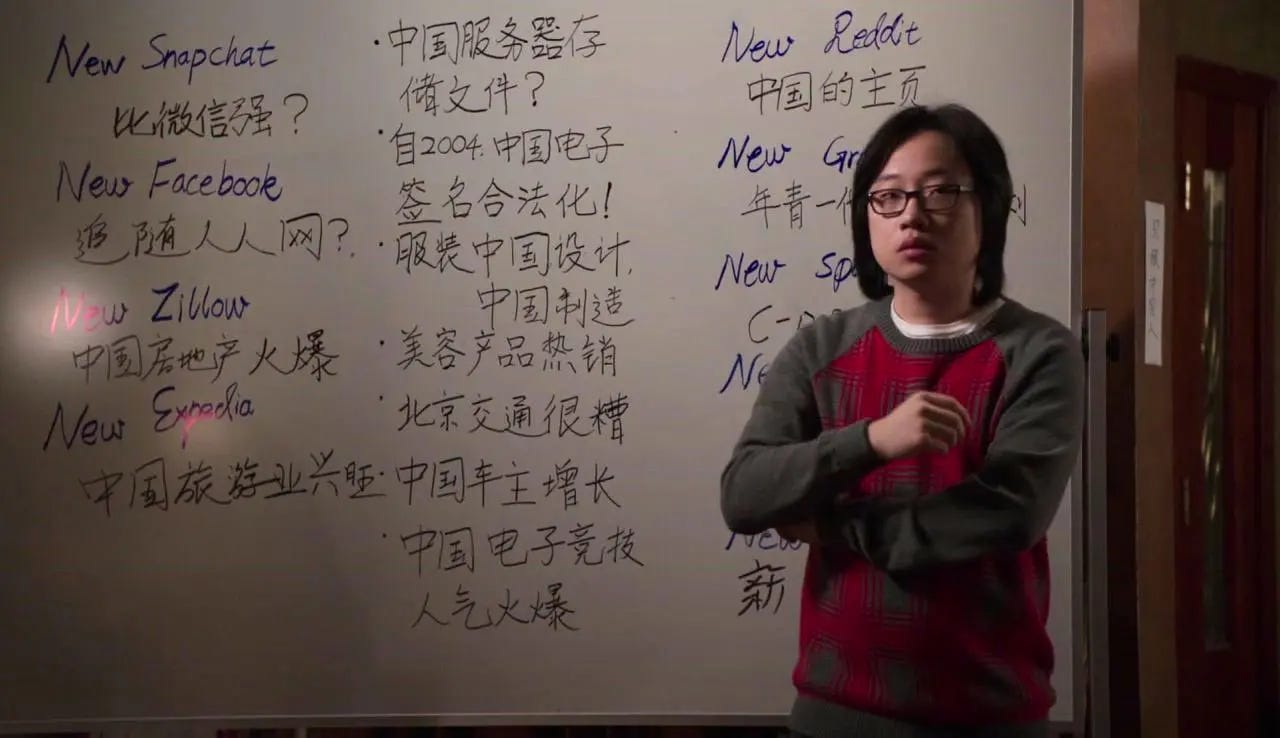 New Snapchat
比微信强？
New Facebook
追随人人网？
New Zillow
中国房地产火爆
New Expedia
中国旅游业兴旺
·中国服务器存
储文件？
·自2004.中国电子
签名合法化！
·服装中国设计，
中国制造
·美容产品热销
·北京交通很糟
·中国车主增长
·中国电子竞技
人气火爆
New Reddit
中国的主页
New
年青一
New
New
新